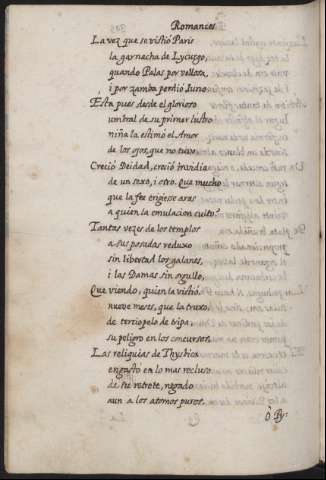 Romances.
La vez que se vistió Paris
la garnacha de Lycurgo,
quando Palas por vellosa,
i por zamba perdió Iuno.
Esta pues desde el glorioso
umbral de su primer lustro
niña la estimó el Amor
de los ojos, que no tuvo.
Creció Deidad, creció invidia
de un sexo, i otro. Que mucho
que la fee erigiesse aras
a quien la emulacion culto?
Tantas vezes de los templos
a sus posadas reduxo
sin libertad los galanes,
i las Damas sin orgullo,
Que viendo, quien la vistió
nueve meses, que la truxo
de terciopelo de tripa,
su peligro en los concursos.
Las reliquias de Thysbica
engasto en lo mas recluso
de su retrete, negado
aun a los atomos puros.
ò Py-